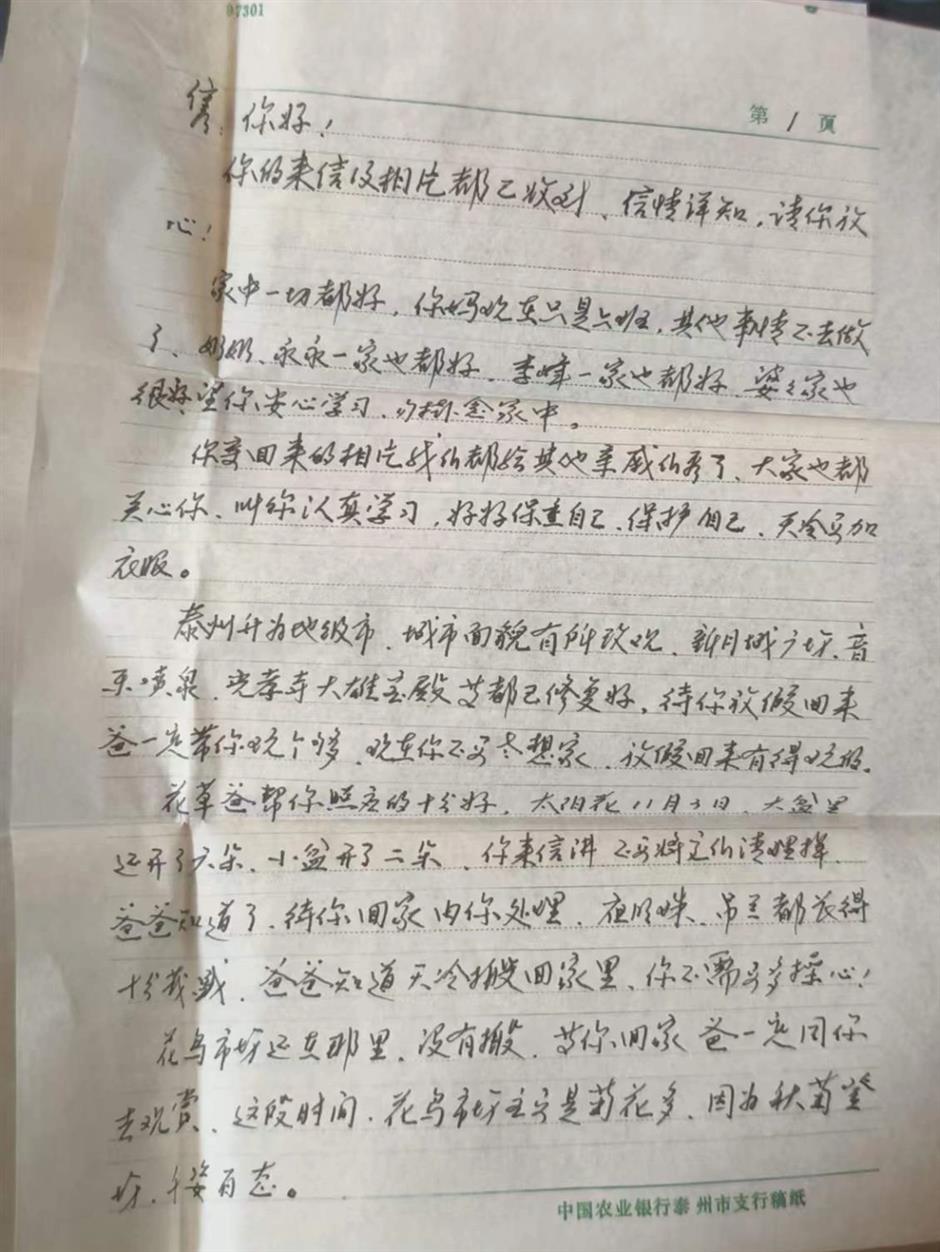 97301
第 1 頁
你好！
你的来信及相片都已收到、信情详知，请你放
心！
家中一切都好，你妈现在只是上班，其他事情不去做
了、奶奶、永永一家也都好、李峰一家也都好、婆婆家也
很好，望你安心学习、勿挂念家中。
你寄回来的相片我们都给其他亲戚们看了、大家也都
关心你、叫你认真学习，好好保重自己、保护自己、天冷要加
衣服。
泰州升为地级市、城市面貌有所改观、新月城广场、音
乐喷泉、光孝寺大雄宝殿等都已修复好，待你放假回来
爸一定带你玩个够、现在你不要太想家、放假回来有得玩的。
花草爸帮你照应的十分好，太阳花11月3日、大盆里
还开了六朵、小盆开了二朵、你来信讲不要将它们清理掉、
爸爸知道了、待你回家由你处理、夜明珠、吊兰都长得
十分茂盛、爸爸知道天冷搬回家里、你不需要多操心！
花鸟市场还在那里、没有搬、等你回家爸一定同你
去观赏、这段时间、花鸟市场主要是菊花多、因为秋菊登
场、千姿百态。
中国农业银行泰州市支行稿纸